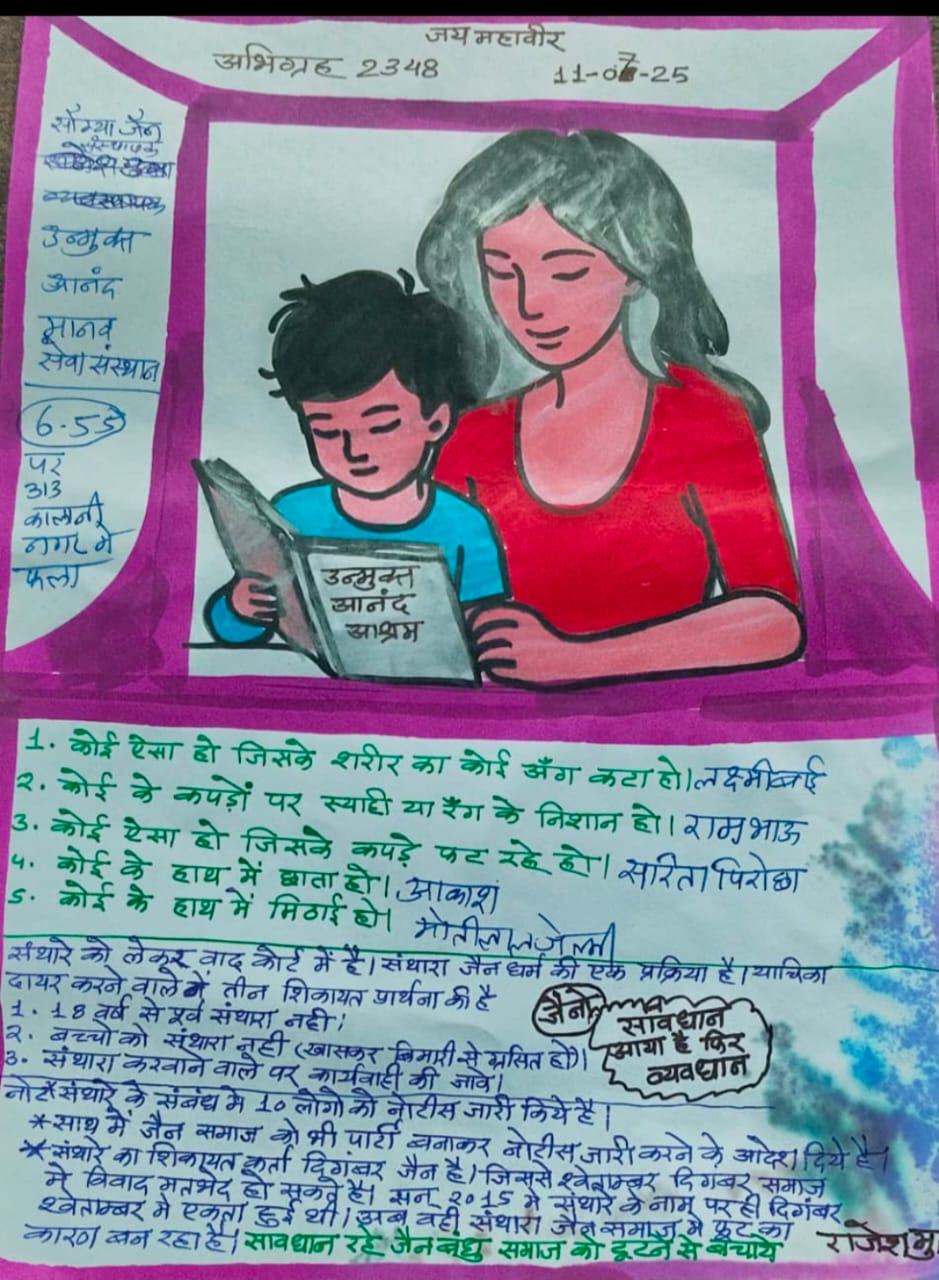 जय महावीर
अभिग्रह 2348
11-07-25
सौम्या जैन
संस्थापक
उन्मुक्त
आनंद
मानव
सेवा संस्थान
6.55
पर
313
कालानी
नगर में
फला
उन्मुक्त
आनंद
आश्रम
1. कोई ऐसा हो जिसके शरीर का कोई अँग कटा हो। लक्ष्मीबाई
2. कोई के कपड़ों पर स्याही या रँग के निशान हो। रामुभाऊ
3. कोई ऐसा हो जिसके कपड़े फट रहे हो। सरिता पिरोछा
4. कोई के हाथ में छाता हो। आकाश
5. कोई के हाथ में मिठाई हो। मोतीलाल
संथारे को लेकर वाद कोर्ट में है। संथारा जैन धर्म की एक प्रक्रिया है। याचिका
दायर करने वाले ने तीन शिकायत प्रार्थना की है
1. 18 वर्ष से पूर्व संथारा नही।
2. बच्चो को संथारा नही (खासकर बिमारी से ग्रसित हो)।
3. संथारा करवाने वाले पर कार्यवाही की जावे।
जैनो
सावधान
आया है फिर
व्यवधान
नोट* संथारे के संबंध मे 10 लोगो को नोटीस जारी किये है।
* साथ में जैन समाज को भी पार्टी बनाकर नोटीस जारी करने के आदेश दिये है।
* संथारे का शिकायत कर्ता दिगंबर जैन है। जिससे श्वेताम्बर दिगंबर समाज
मे विवाद मतभेद हो सकते है। सन् 2015 मे संथारे के नाम पर ही दिगंबर
श्वेताम्बर मे एकता हुई थी। अब वही संथारा जैन समाज मे फूट का
कारण बन रहा है। सावधान रहे जैन बंधु समाज को टूटने से बचाये
राजेश मु